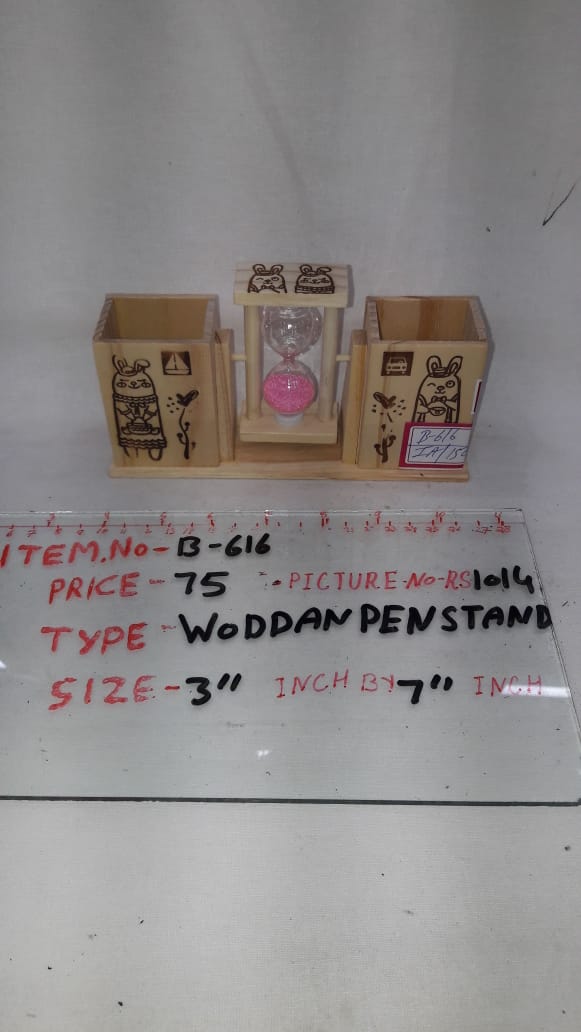 B-616
IA/15
ITEM.No-B-616
PRICE-75 PICTURE-No-RS1014
TYPE-WODDAN PENSTAND
SIZE-3" INCH BY 7" INCH